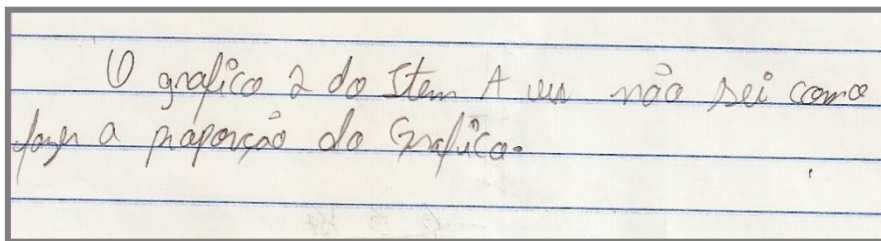 O grafico 2 do Item A eu não sei como
fazer a proporção do Grafico.